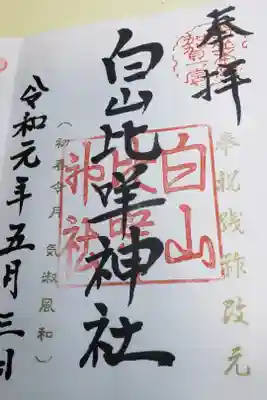 奉拝
加賀一宮
奉祝践祚改元
白山比咩神社
白山比咩神社
(初春令月 気淑風和)
令和元年五月三日